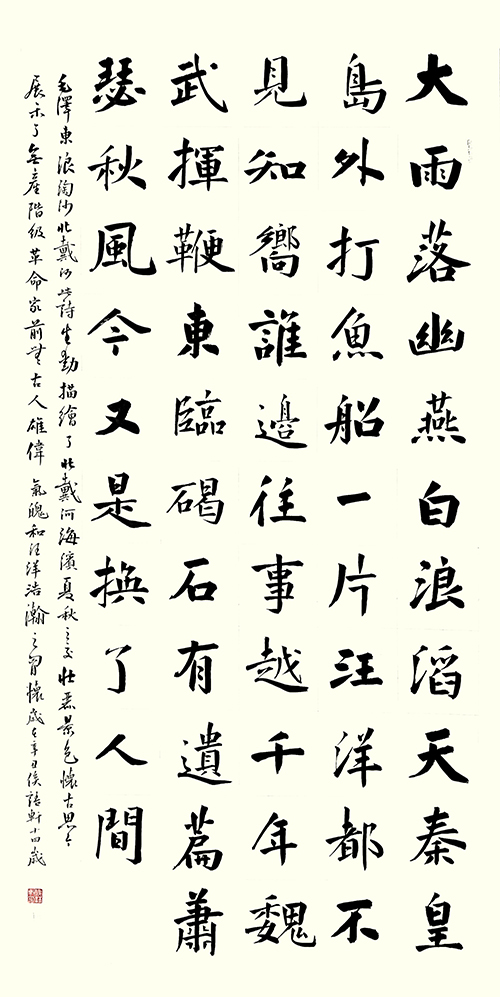 大雨落幽燕白浪滔天秦皇
島外打魚船一片汪洋都不
見知嚮誰邊往事越千年魏
武揮鞭東臨碣石有遺篇蕭
瑟秋風今又是換了人間
毛澤東浪淘沙北戴河此詩生動描繪了北戴河海濱夏秋之交壯麗景色懷古思今
展示了無產階級革命家前無古人雄偉氣魄和汪洋浩瀚之胸懷歲在辛丑侯語軒十四歲